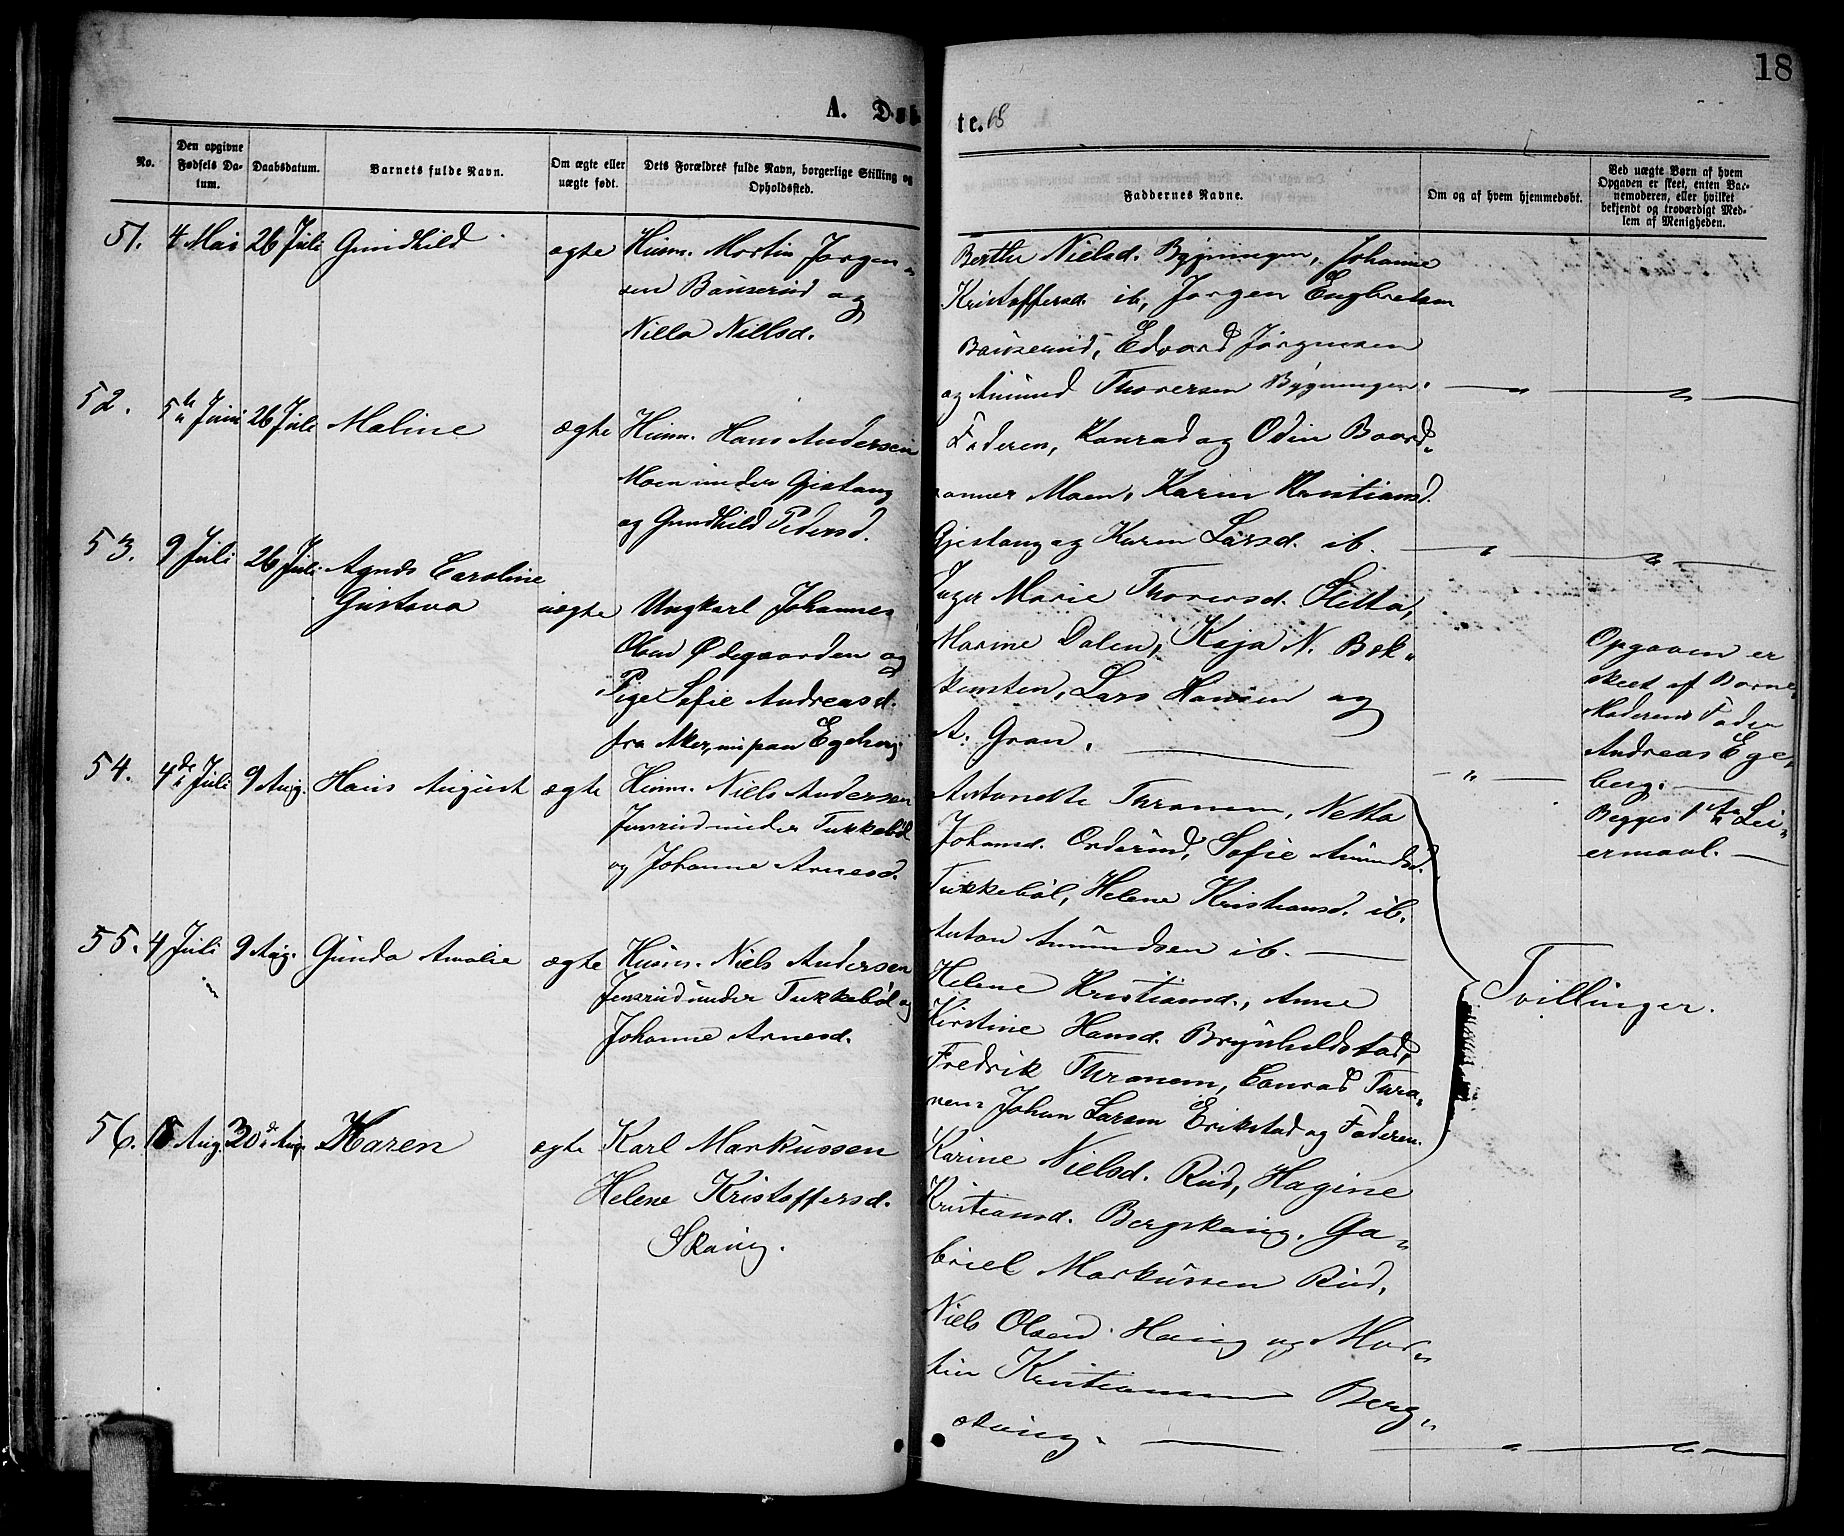 18
A. Døb
te. 68
No.
Den opgivne Fødsels Datum.
Daabsdatum.
Barnets fulde Navn.
Om ægte eller uægte født.
Dets Forældres fulde Navn, borgerlige Stilling og Opholdssted.
Faddernes Navne.
Om og af hvem hjemmedøbt.
Ved uægte Børn af hvem Opgaven er skeet, enten Barnemoderen, eller hvilket bekjendt og troværdigt Medlem af Menigheden.
51. 4 Mai 26 Juli Gundhild ægte Husm. Martin Jørgen-
sen Bauserud og
Nilla Nielsd.
Berthe Nielsd. Bygningen, Johanne
Kristoffersd. ib, Jørgen Engbretsen
Bauserud, Edvard Jørgensen
og Amund Thoresen Bygningen.
52. 5te Juni 26 Juli Maline ægte Husm. Hans Andersen
Moen under Gjestang
og Gundhild Pedersd.
Faderen, Konrad og Odin Baard-
sønner Moen, Karin Kristiansd.
Gjestang og Karen Larsd. ib.
53. 9 Juli 26 Juli Agnes Caroline
Gustava uægte Ungkarl Johannes
Olsen Ødegaarden og
Pige Sofie Andreasd.
fra Aker, nu paa Egeberg.
Inger Marie Thoresd. Sletta,
Marine Dalen, Kaja N. Bek-
kensten, Lars Hansen og
A. Gran.
Opgaven er
skeet af Barne-
Moderens Fader
Andreas Ege-
berg.
Begges 1ste Lei-
ermaal.
54. 4de Juli 9 Aug. Hans August ægte Husm. Niels Andersen
Jensrud under Tukkebøl
og Johanne Arnesd.
Antonette Thronem, Netta
Johansd. Orderud, Sofie Amundsd.
Tukkebøl, Helene Kristiansd. ib.
Anton Amundsen ib.
55. 4 Juli 9 Aug. Gunda Amalie ægte Husm. Niels Andersen
Jensrud under Tukkebøl og
Johanne Arnesd.
Helene Kristiansd., Anne
Kirstine Hansd. Brynhildstad,
Fredrik Thronem, Conrad Thro-
nem Johan Larsen Erikstad og Faderen.
Tvillinger.
56. 15 Aug. 30de Aug. Karen ægte Karl Markussen
Helene Kristoffersd.
Skaug.
Karine Nielsd. Rud, Hagine
Kristiansd. Bergskaug, Ga-
briel Markussen Rud,
Niels Olsen Haug og Mar-
tin Kristiansen Berg-
skaug.